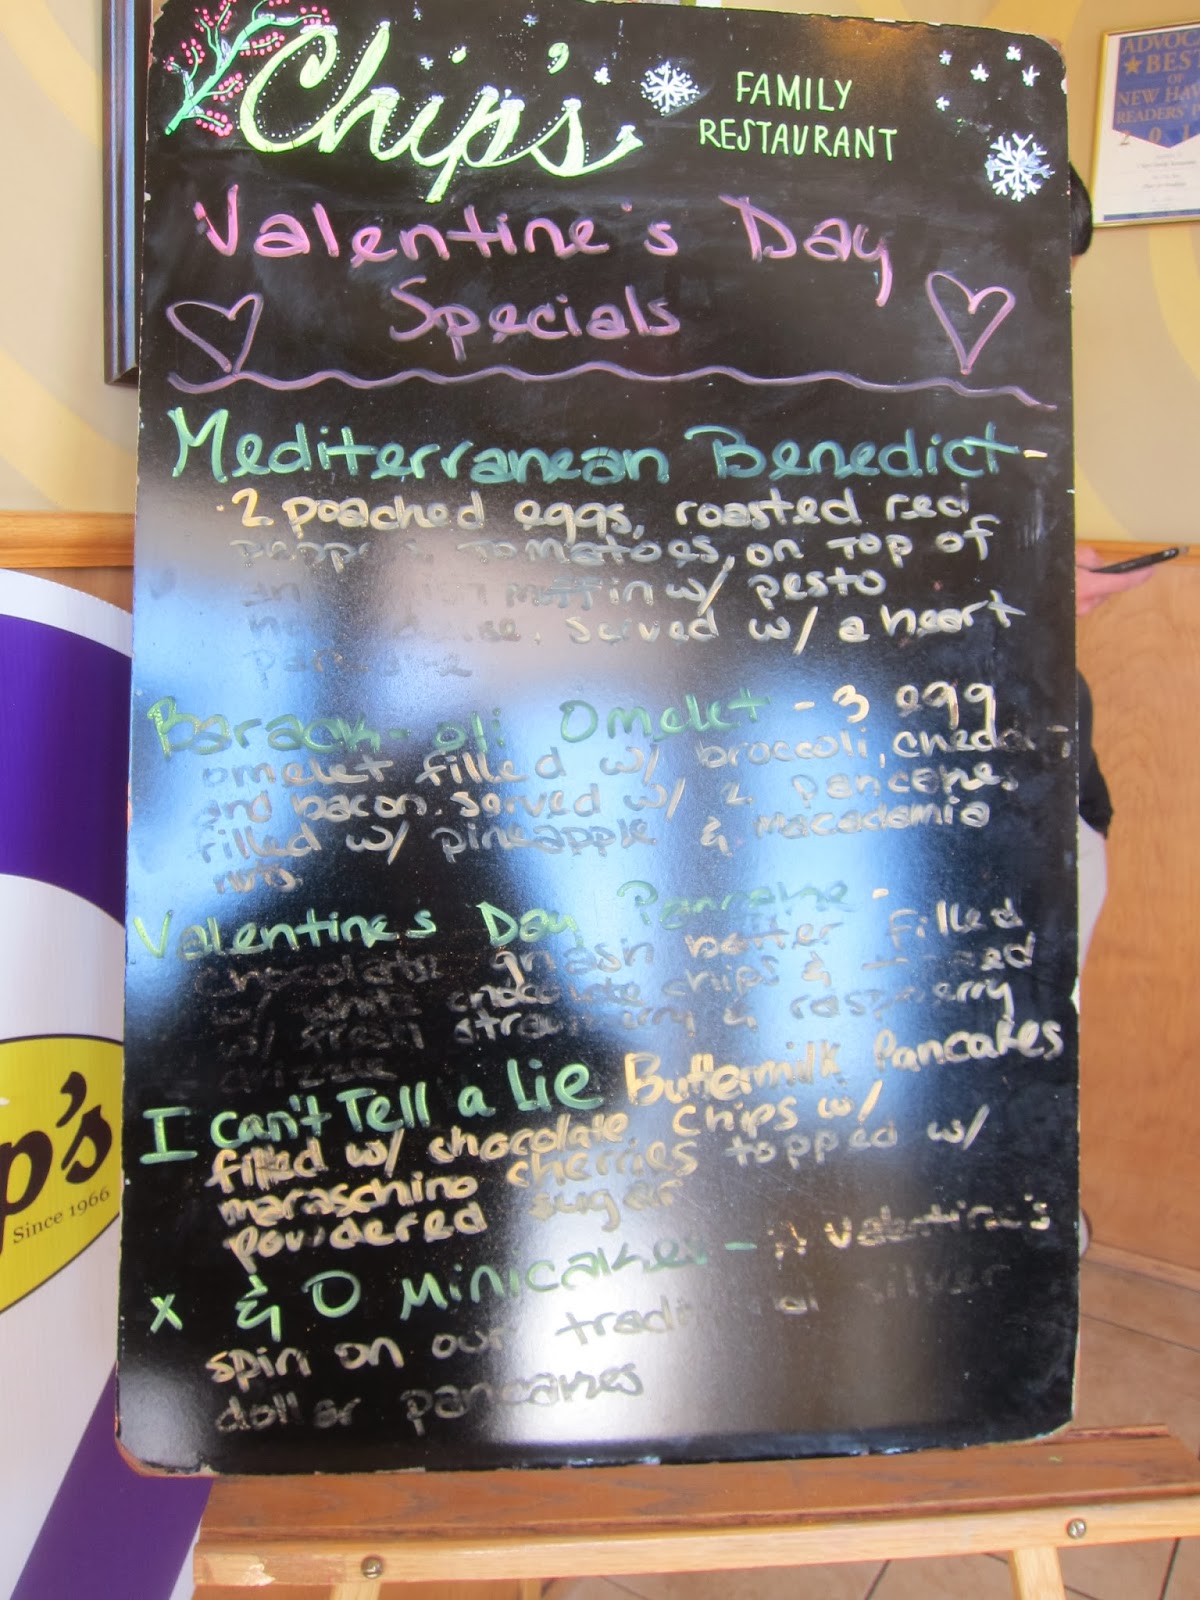 Chip's
FAMILY
RESTAURANT
Valentine's Day
Specials
Mediterranean Benedict -
· 2 poached eggs, roasted red
tomatoes, on top of
muffin w/ pesto
served w/ a heart
Barack-oli Omelet - 3 egg
omelet filled w/ broccoli, chedder
and bacon. served w/ 2 pancakes
filled w/ pineapple & macadamia
nuts.
Valentines Day Pancake -
chocolate batter filled
w/ white chocolate chips &
w/ fresh strawberry & raspberry
drizzle
I can't Tell a lie Buttermilk Pancakes
filled w/ chocolate chips w/
maraschino cherries topped w/
powdered sugar
X & O Minicakes - A Valentine's
spin on our traditional silver
dollar pancakes
ADVOC
BES
OF
NEW HAV
READERS'
201
p's
Since 1966